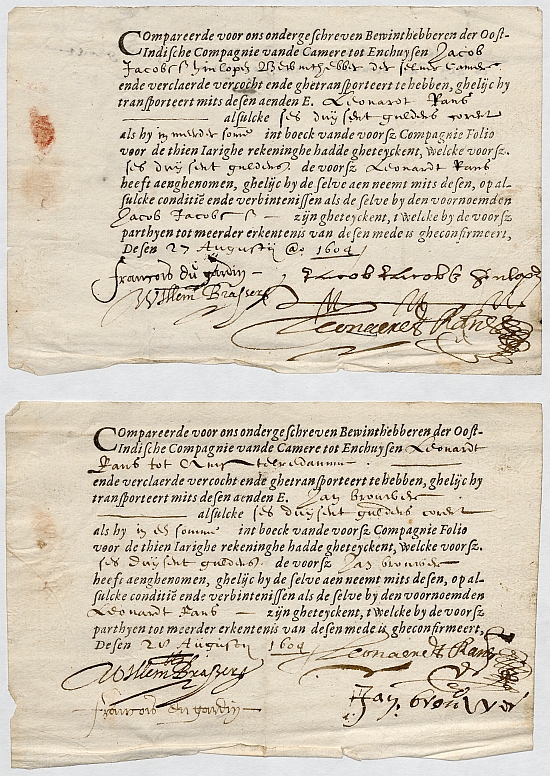 Compareerde voor ons onderge schreven Bewinthebberen der Oost-
Indische Compagnie vande Camere tot Enchuysen Jacob
Jacobs hinlopen Bewinthebber der selver Camere
ende verclaerde vercocht ende ghetransporteert te hebben, ghelijc hy
transporteert mits desen aenden E. Leonardt Rans
alsulcke ses duysent guldens
als hy in meerder somme int boeck vande voorsz Compagnie Folio
voor de thien Iarighe rekeninghe hadde gheteyckent, welcke voorsz.
ses duysent guldens. de voorsz Leonardt Rans
heeft aenghenomen, ghelijc hy de selve aen neemt mits desen, op al-
sulcke conditië ende verbintenissen als de selve by den voornoemden
Jacob Jacobs zijn gheteyckent, t welcke by de voorsz
parthyen tot meerder erkentenis van desen mede is gheconfirmeert,
Desen 27 Augustij @o 1604
francois du gardin
Jacob Jacobs hinlopen
Willem Brassers
Leonaerdt Rans
Compareerde voor ons onderge schreven Bewinthebberen der Oost-
Indische Compagnie vande Camere tot Enchuysen Leonardt
Rans tot Amsteeredamme
ende verclaerde vercocht ende ghetransporteert te hebben, ghelijc hy
transporteert mits desen aenden E. Jan brouwer
alsulcke ses duysent guldens
als hy in somme int boeck vande voorsz Compagnie Folio
voor de thien Iarighe rekeninghe hadde gheteyckent, welcke voorsz.
ses duysent guldens. de voorsz Jan brouwer
heeft aenghenomen, ghelijc hy de selve aen neemt mits desen, op al-
sulcke conditië ende verbintenissen als de selve by den voornoemden
Leonardt Rans zijn gheteyckent, t welcke by de voorsz
parthyen tot meerder erkentenis van desen mede is gheconfirmeert,
Desen 28 Augustij 1604
Leonaerdt Rans
Willem Brassers
Jan brouwer
francois du gardin